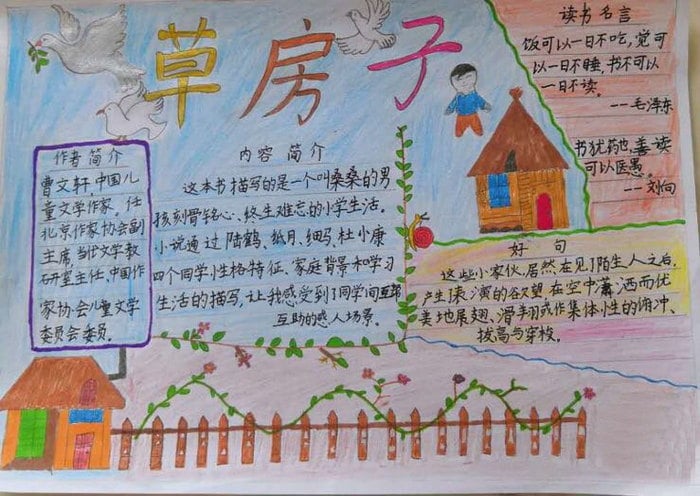 草房子
作者简介
曹文轩,中国儿
童文学作家。任
北京作家协会副
主席,当代文学教
研室主任、中国作
家协会儿童文学
委员会委员.
内容简介
这本书描写的是一个叫桑桑的男
孩刻骨铭心、终生难忘的小学生活。
小说通过陆鹤、纸月、细妈、杜小康
四个同学性格特征、家庭背景和学习
生活的描写,让我感受到了同学间互帮
互助的感人场景.
读书名言
饭可以一日不吃,觉可
以一日不睡,书不可以
一日不读。
--毛泽东
书犹药也,善读
可以医愚。
--刘向
好句
这些小家伙,居然在见了陌生人之后,
产生了表演的欲望,在空中潇洒而优
美地展翅、滑翔或作集体性的俯冲、
拔高与穿梭。